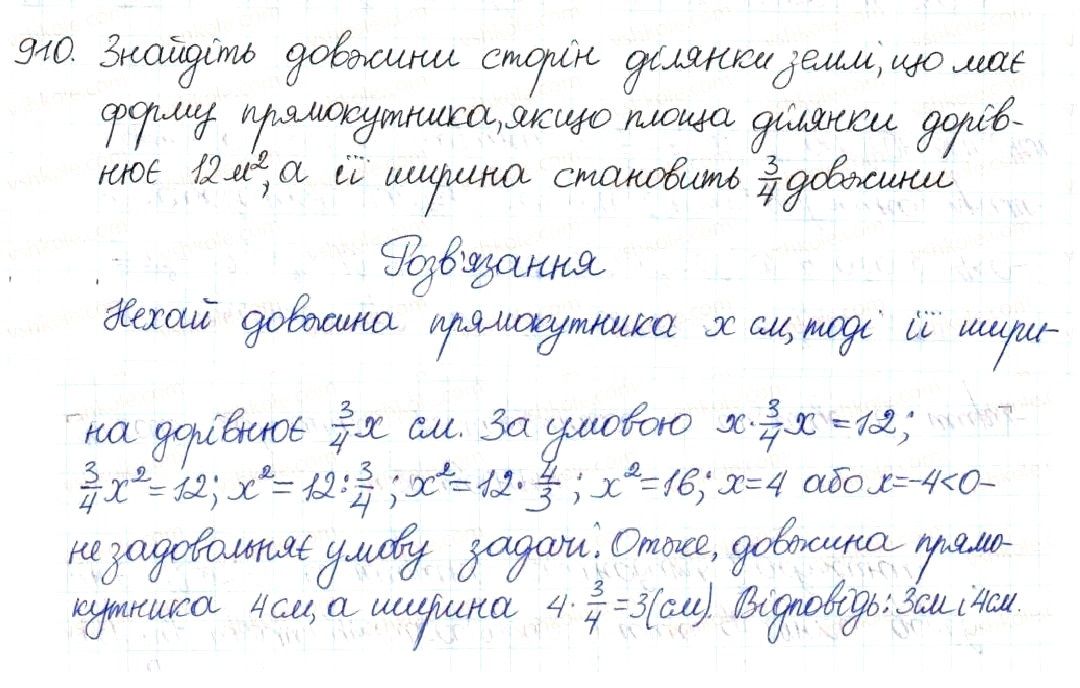 910. Знайдіть довжини сторін ділянки землі, що має
форму прямокутника, якщо площа ділянки дорів-
нює 12 м², а її ширина становить 3/4 довжини
Розв'язання
Нехай довжина прямокутника x см, тоді її шири-
на дорівнює 3/4 x см. За умовою x · 3/4 x = 12;
3/4 x² = 12; x² = 12 : 3/4; x² = 12 · 4/3; x² = 16; x = 4 або x = -4 < 0 -
не задовольняє умову задачі. Отже, довжина прямо-
кутника 4 см, а ширина 4 · 3/4 = 3 (см). Відповідь: 3 см і 4 см.